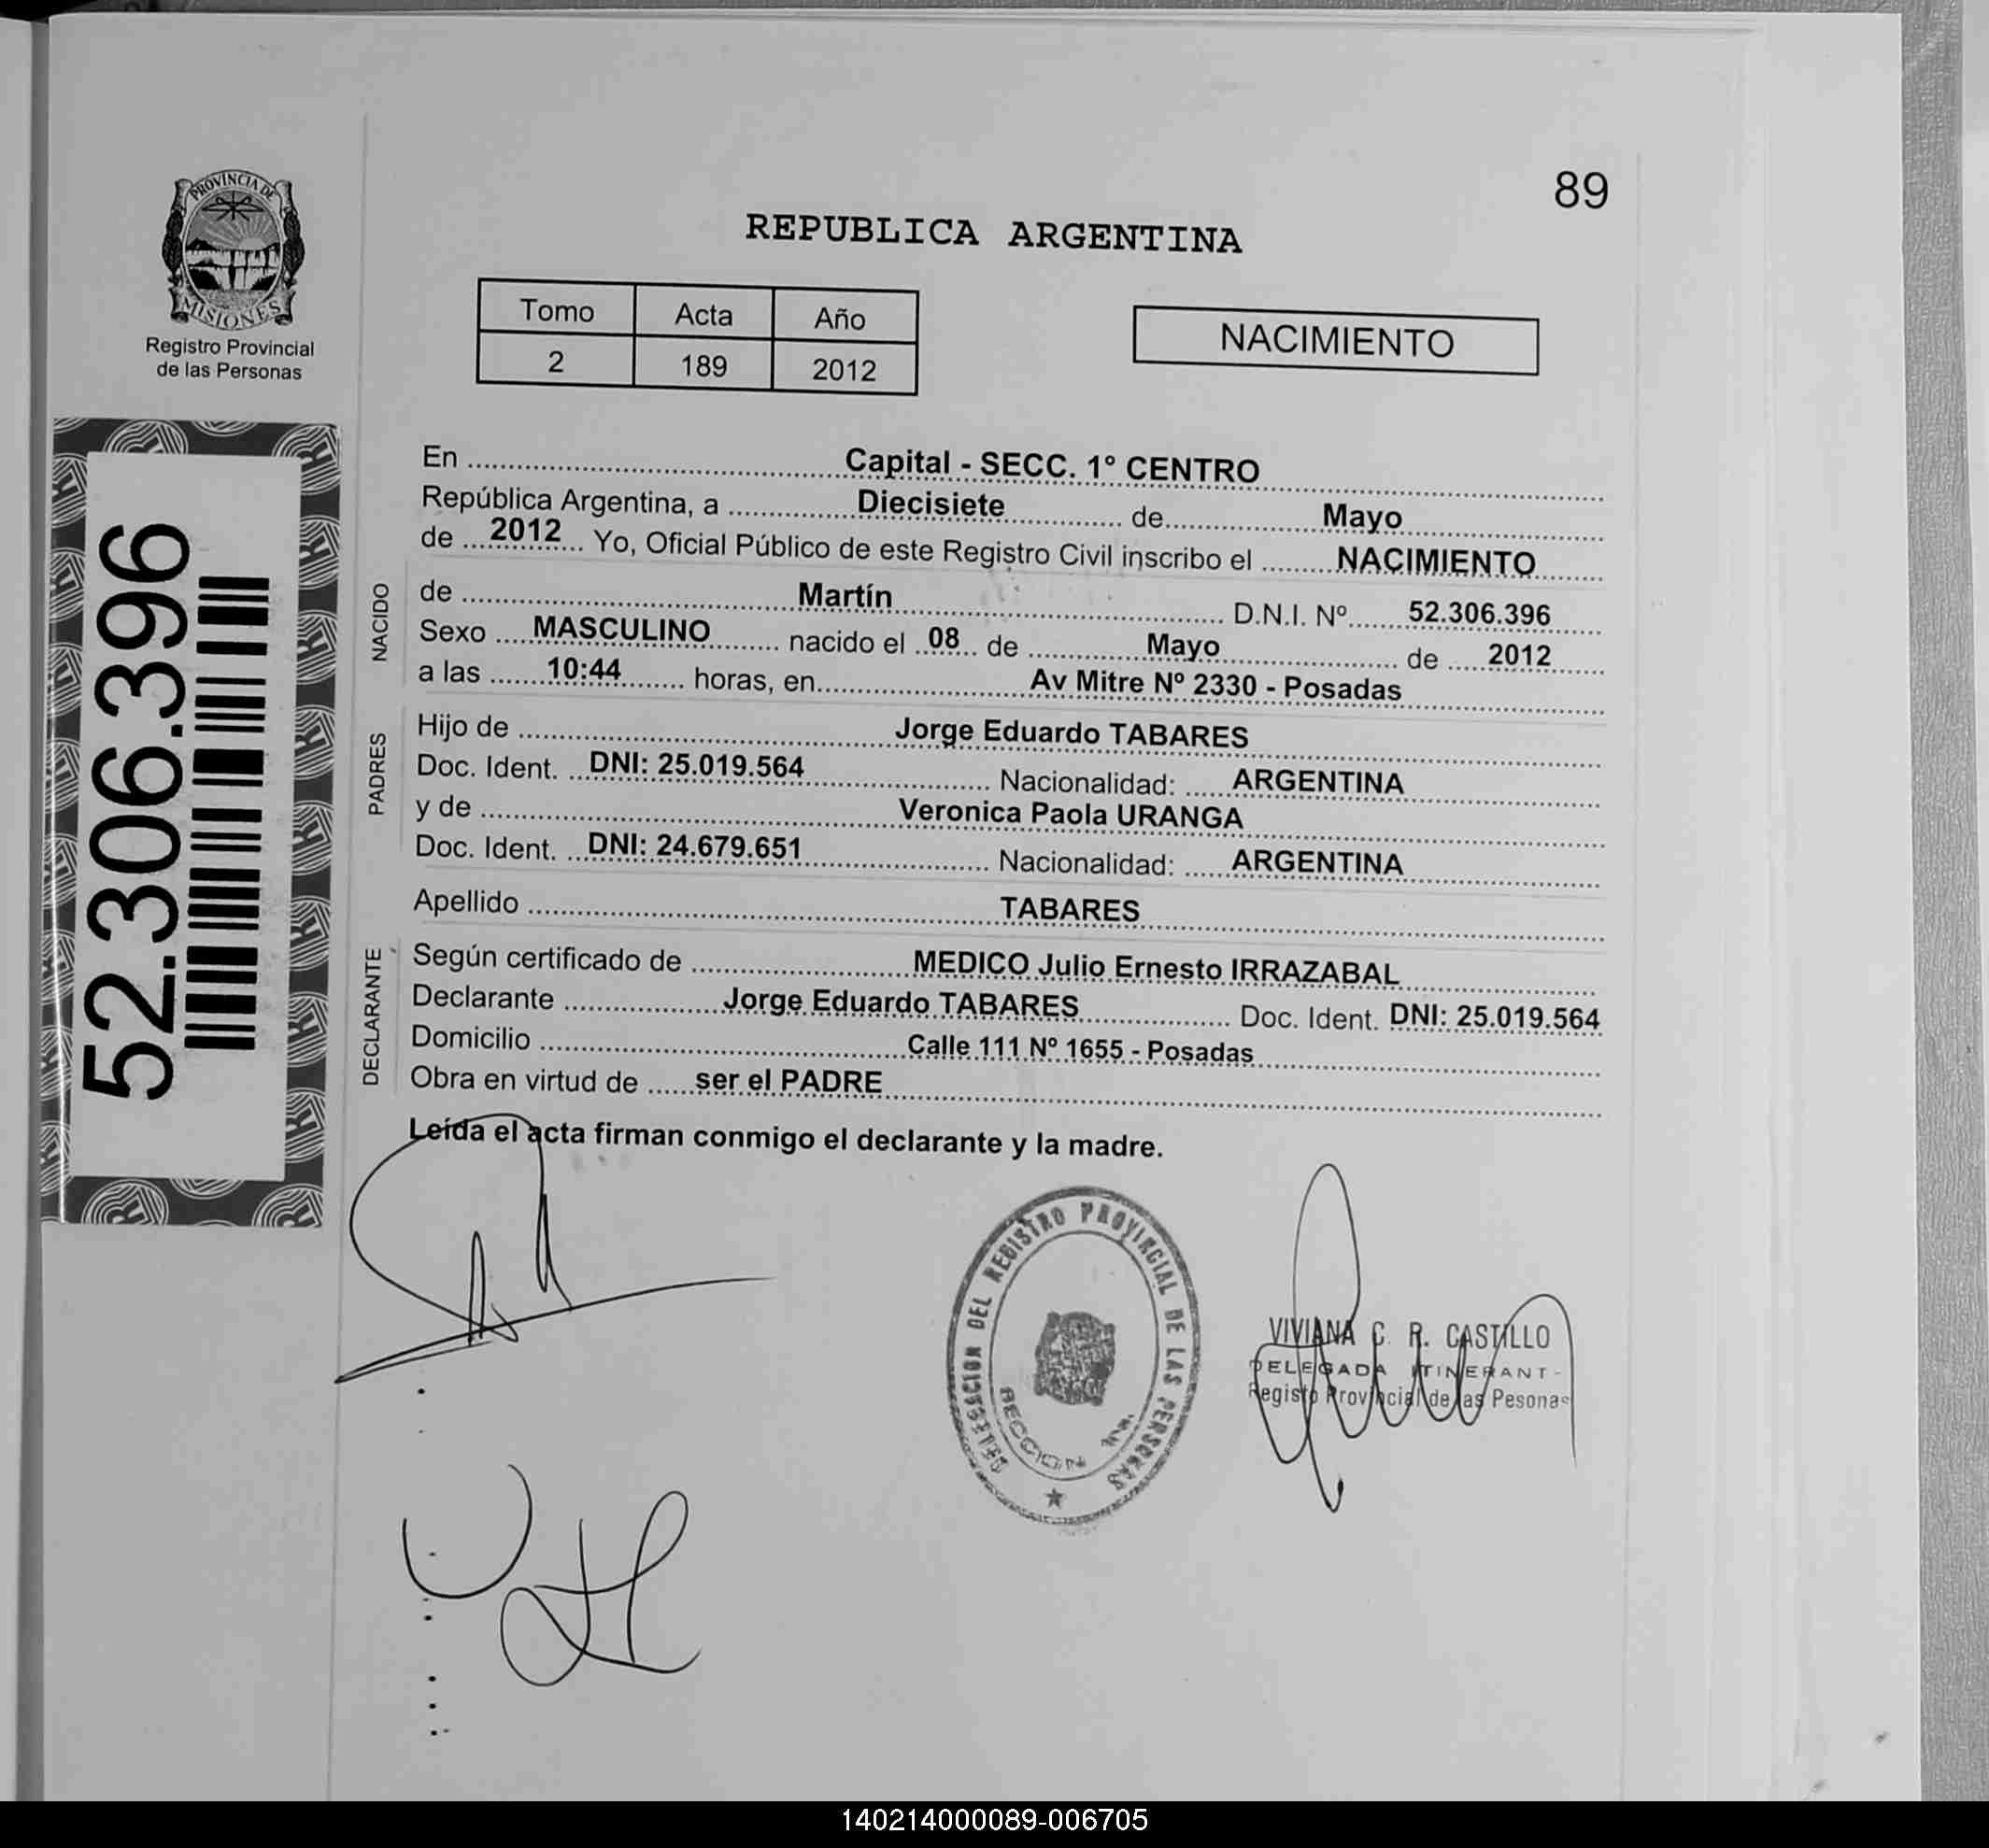 89
PROVINCIA DE
MISIONES
Registro Provincial
de las Personas
REPUBLICA ARGENTINA
Tomo Acta Año
2 189 2012
NACIMIENTO
52.306.396
En Capital - SECC. 1° CENTRO
República Argentina, a Diecisiete de Mayo
de 2012 Yo, Oficial Público de este Registro Civil inscribo el NACIMIENTO
NACIDO
de Martín D.N.I. Nº 52.306.396
Sexo MASCULINO nacido el 08 de Mayo de 2012
a las 10:44 horas, en Av Mitre Nº 2330 - Posadas
PADRES
Hijo de Jorge Eduardo TABARES
Doc. Ident. DNI: 25.019.564 Nacionalidad: ARGENTINA
y de Veronica Paola URANGA
Doc. Ident. DNI: 24.679.651 Nacionalidad: ARGENTINA
Apellido TABARES
DECLARANTE
Según certificado de MEDICO Julio Ernesto IRRAZABAL
Declarante Jorge Eduardo TABARES Doc. Ident. DNI: 25.019.564
Domicilio Calle 111 Nº 1655 - Posadas
Obra en virtud de ser el PADRE
Leída el acta firman conmigo el declarante y la madre.
DELEGACION DEL REGISTRO PROVINCIAL DE LAS PERSONAS
SECCION
VIVIANA C. R. CASTILLO
DELEGADA ITINERANT-
Registo Provincial de las Pesonas
140214000089-006705